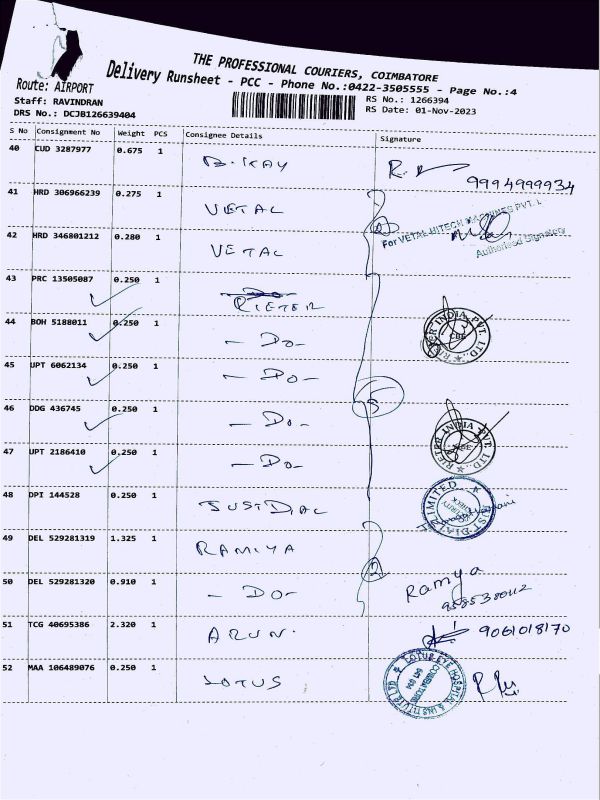 THE PROFESSIONAL COURIERS, COIMBATORE
Delivery Runsheet - PCC - Phone No.:0422-3505555 - Page No.:4
Route: AIRPORT
Staff: RAVINDRAN
DRS No.: DCJB126639404
RS No.: 1266394
RS Date: 01-Nov-2023
S No Consignment No Weight PCS Consignee Details Signature
40 CUD 3287977 0.675 1 B. KAY
9994999934
41 HRD 306966239 0.275 1 VETAL
For VETAL HITECH MACHINES PVT. L
Authorised Signatory
42 HRD 346801212 0.280 1 VETAL
2
43 PRC 13505087 0.250 1 RIETER
44 BOH 5188011 0.250 1 - Do -
RIETER INDIA PVT. LTD.
CBE
45 UPT 6062134 0.250 1 - Do -
5
46 DDG 436745 0.250 1 - Do -
RIETER INDIA PVT. LTD.
47 UPT 2186410 0.250 1 - Do -
48 DPI 144528 0.250 1 JUSTDIAL
JUST DIAL LIMITED
49 DEL 529281319 1.325 1 RAMIYA
2
50 DEL 529281320 0.910 1 - Do -
Ramya
51 TCG 40695386 2.320 1 ARUN.
9061018170
52 MAA 106489076 0.250 1 LOTUS
LOTUS EYE HOSPITAL & INSTITUTE LTD
COIMBATORE
641 014